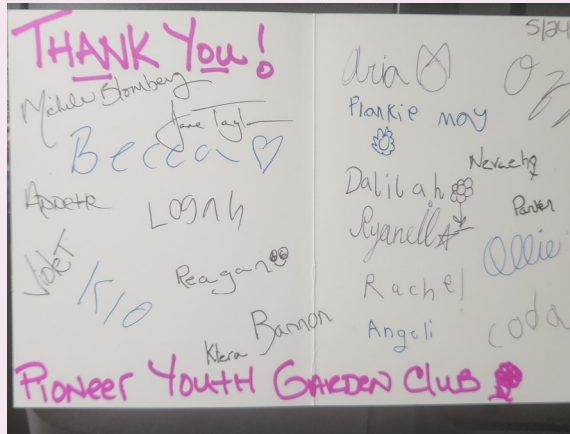 THANK YOU!
Michele Blomberg
Jane Taylor
Becca
Logan
Violet
Kio
Reagan
Bannon
Kiera
5/24
Aria
Oz
Frankie may
Nevaeh
Dalilah
Parker
Ryanell
Ollie
Rachel
Angeli
coda
PIONEER YOUTH GARDEN CLUB